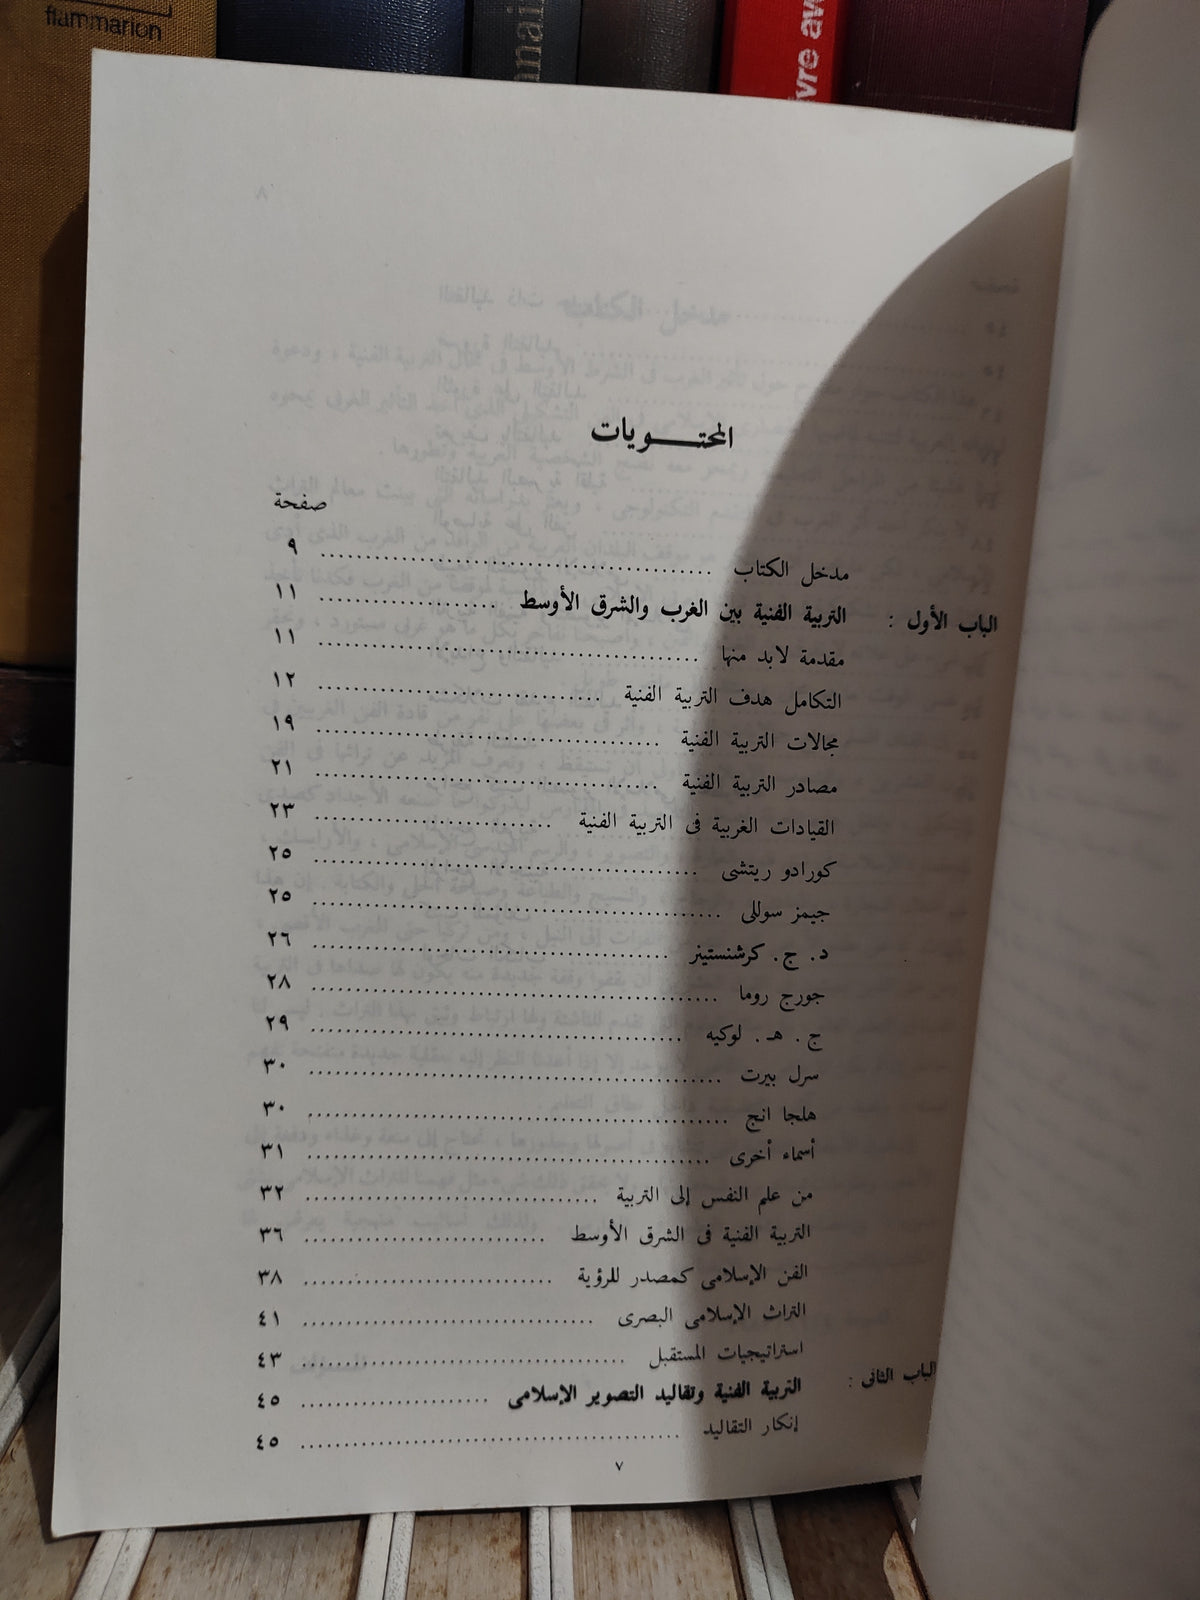 flammarion
المحتويات
صفحة
مدخل الكتاب ........ ٩
الباب الأول : التربية الفنية بين الغرب والشرق الأوسط ........ ١١
مقدمة لابد منها ........ ١١
التكامل هدف التربية الفنية ........ ١٢
مجالات التربية الفنية ........ ١٩
مصادر التربية الفنية ........ ٢١
القيادات الغربية فى التربية الفنية ........ ٢٣
كورادو ريتشى ........ ٢٥
جيمز سوللى ........ ٢٥
د. ج. كرشنستينر ........ ٢٦
جورج روما ........ ٢٨
ج. هـ. لوكيه ........ ٢٩
سرل بيرت ........ ٣٠
هلجا انج ........ ٣٠
أسماء أخرى ........ ٣١
من علم النفس إلى التربية ........ ٣٢
التربية الفنية فى الشرق الأوسط ........ ٣٦
الفن الإسلامى كمصدر للرؤية ........ ٣٨
التراث الإسلامى البصرى ........ ٤١
استراتيجيات المستقبل ........ ٤٣
الباب الثانى : التربية الفنية وتقاليد التصوير الإسلامى ........ ٤٥
إنكار التقاليد ........ ٤٥
٧